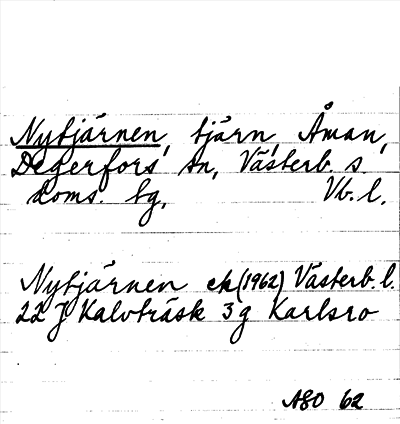 Nytjärnen, tjärn, Åman,
Degerfors sn, Västerb. s.
doms. tg, Vb. l.
Nytjärnen ek (1962) Västerb. l.
22 J Kalvträsk 3 g Karlsro
ASO 62